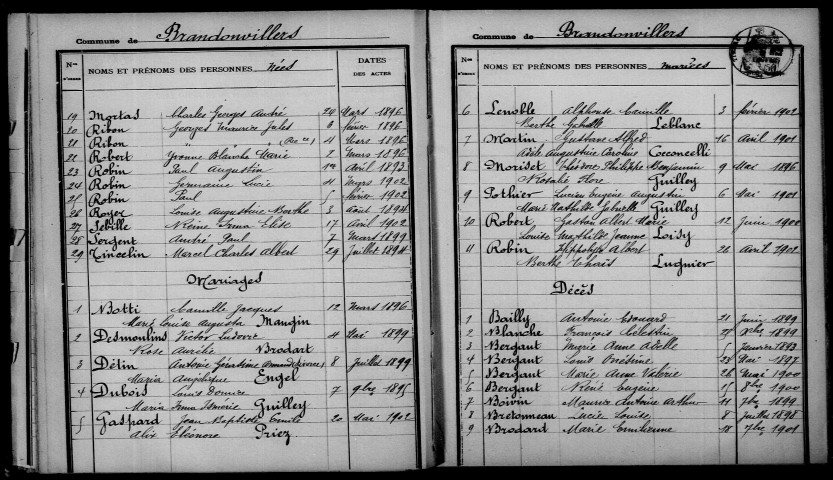 Commune de Brandonvillers
Nos D'ORDRE NOMS ET PRÉNOMS DES PERSONNES Nées DATES DES ACTES
19 Mortas Charles Georges André 24 Mars 1896
20 Ribon Georges Maurice Jules 3 février 1896
21 Ribon " " 4 Mars 1896
22 Robert Yvonne Blanche Marie 2 Mars 1896
23 Robin Paul Augustin Avril 1893
24 Robin Germaine Lucie 4 Mars 1902
25 Robin Paul février 1902
26 Royer Louise Augustine Berthe 3 Août 1894
27 Sébille Irma Elise 17 Avril 1902
28 Sergent André Paul 7 Mars 1899
29 Tincelin Marcel Charles Albert 29 Juillet 1894
Mariages
1 Botti Camille Jacques 12 Mars 1896
Marie Louise Augusta Maugin
2 Desmoulins Victor Ludovic 4 Mai 1899
Rose Aurélie Brodart
3 Détin Antoine 8 Juillet 1899
Maria Angélique Engel
4 Dubois Louis 7 9bre 1895
Maria Irma Guilley
5 Gaspard Jean Baptiste Emile 20 Mai 1902
Alix Eléonore Priez
Commune de Brandonvillers
Nos D'ORDRE NOMS ET PRÉNOMS DES PERSONNES mariées
6 Lenoble Alphonse Camille 3 février 1902
Berthe Leblanc
7 Martin Gustave Alfred 16 Avril 1901
Adèle Augustine Caroline Cocconcelli
8 Moriset Théodore Philippe Benjamin 9 Mai 1896
Rosalie Flore Guilley
9 Pothier Lucien Eugène Augustin 6 Mai 1901
Marie Mathilde Guilley
10 Robert Gaston Albert Marie 12 Juin 1900
Louise Mathilde Jeanne Loisy
11 Robin Hippolyte Albert 20 Avril 1901
Berthe Thaïs Lugnier
Décès
1 Bailly Antoine Edouard 21 Juin 1899
2 Blanche François Célestin 27 1899
3 Bergant Marie Anne Adelle 5 Janvier 1893
4 Bergant Louis 28 Mai 1897
5 Bergant Marie Anne Valérie 26 Mai 1900
6 Bergant René Eugène 15 8bre 1900
7 Boivin Maurice Antoine Arthur 11 7bre 1899
8 Bretonneau Lucie Louise 8 Juillet 1898
9 Brodard Marie Emilienne 18 7bre 1901